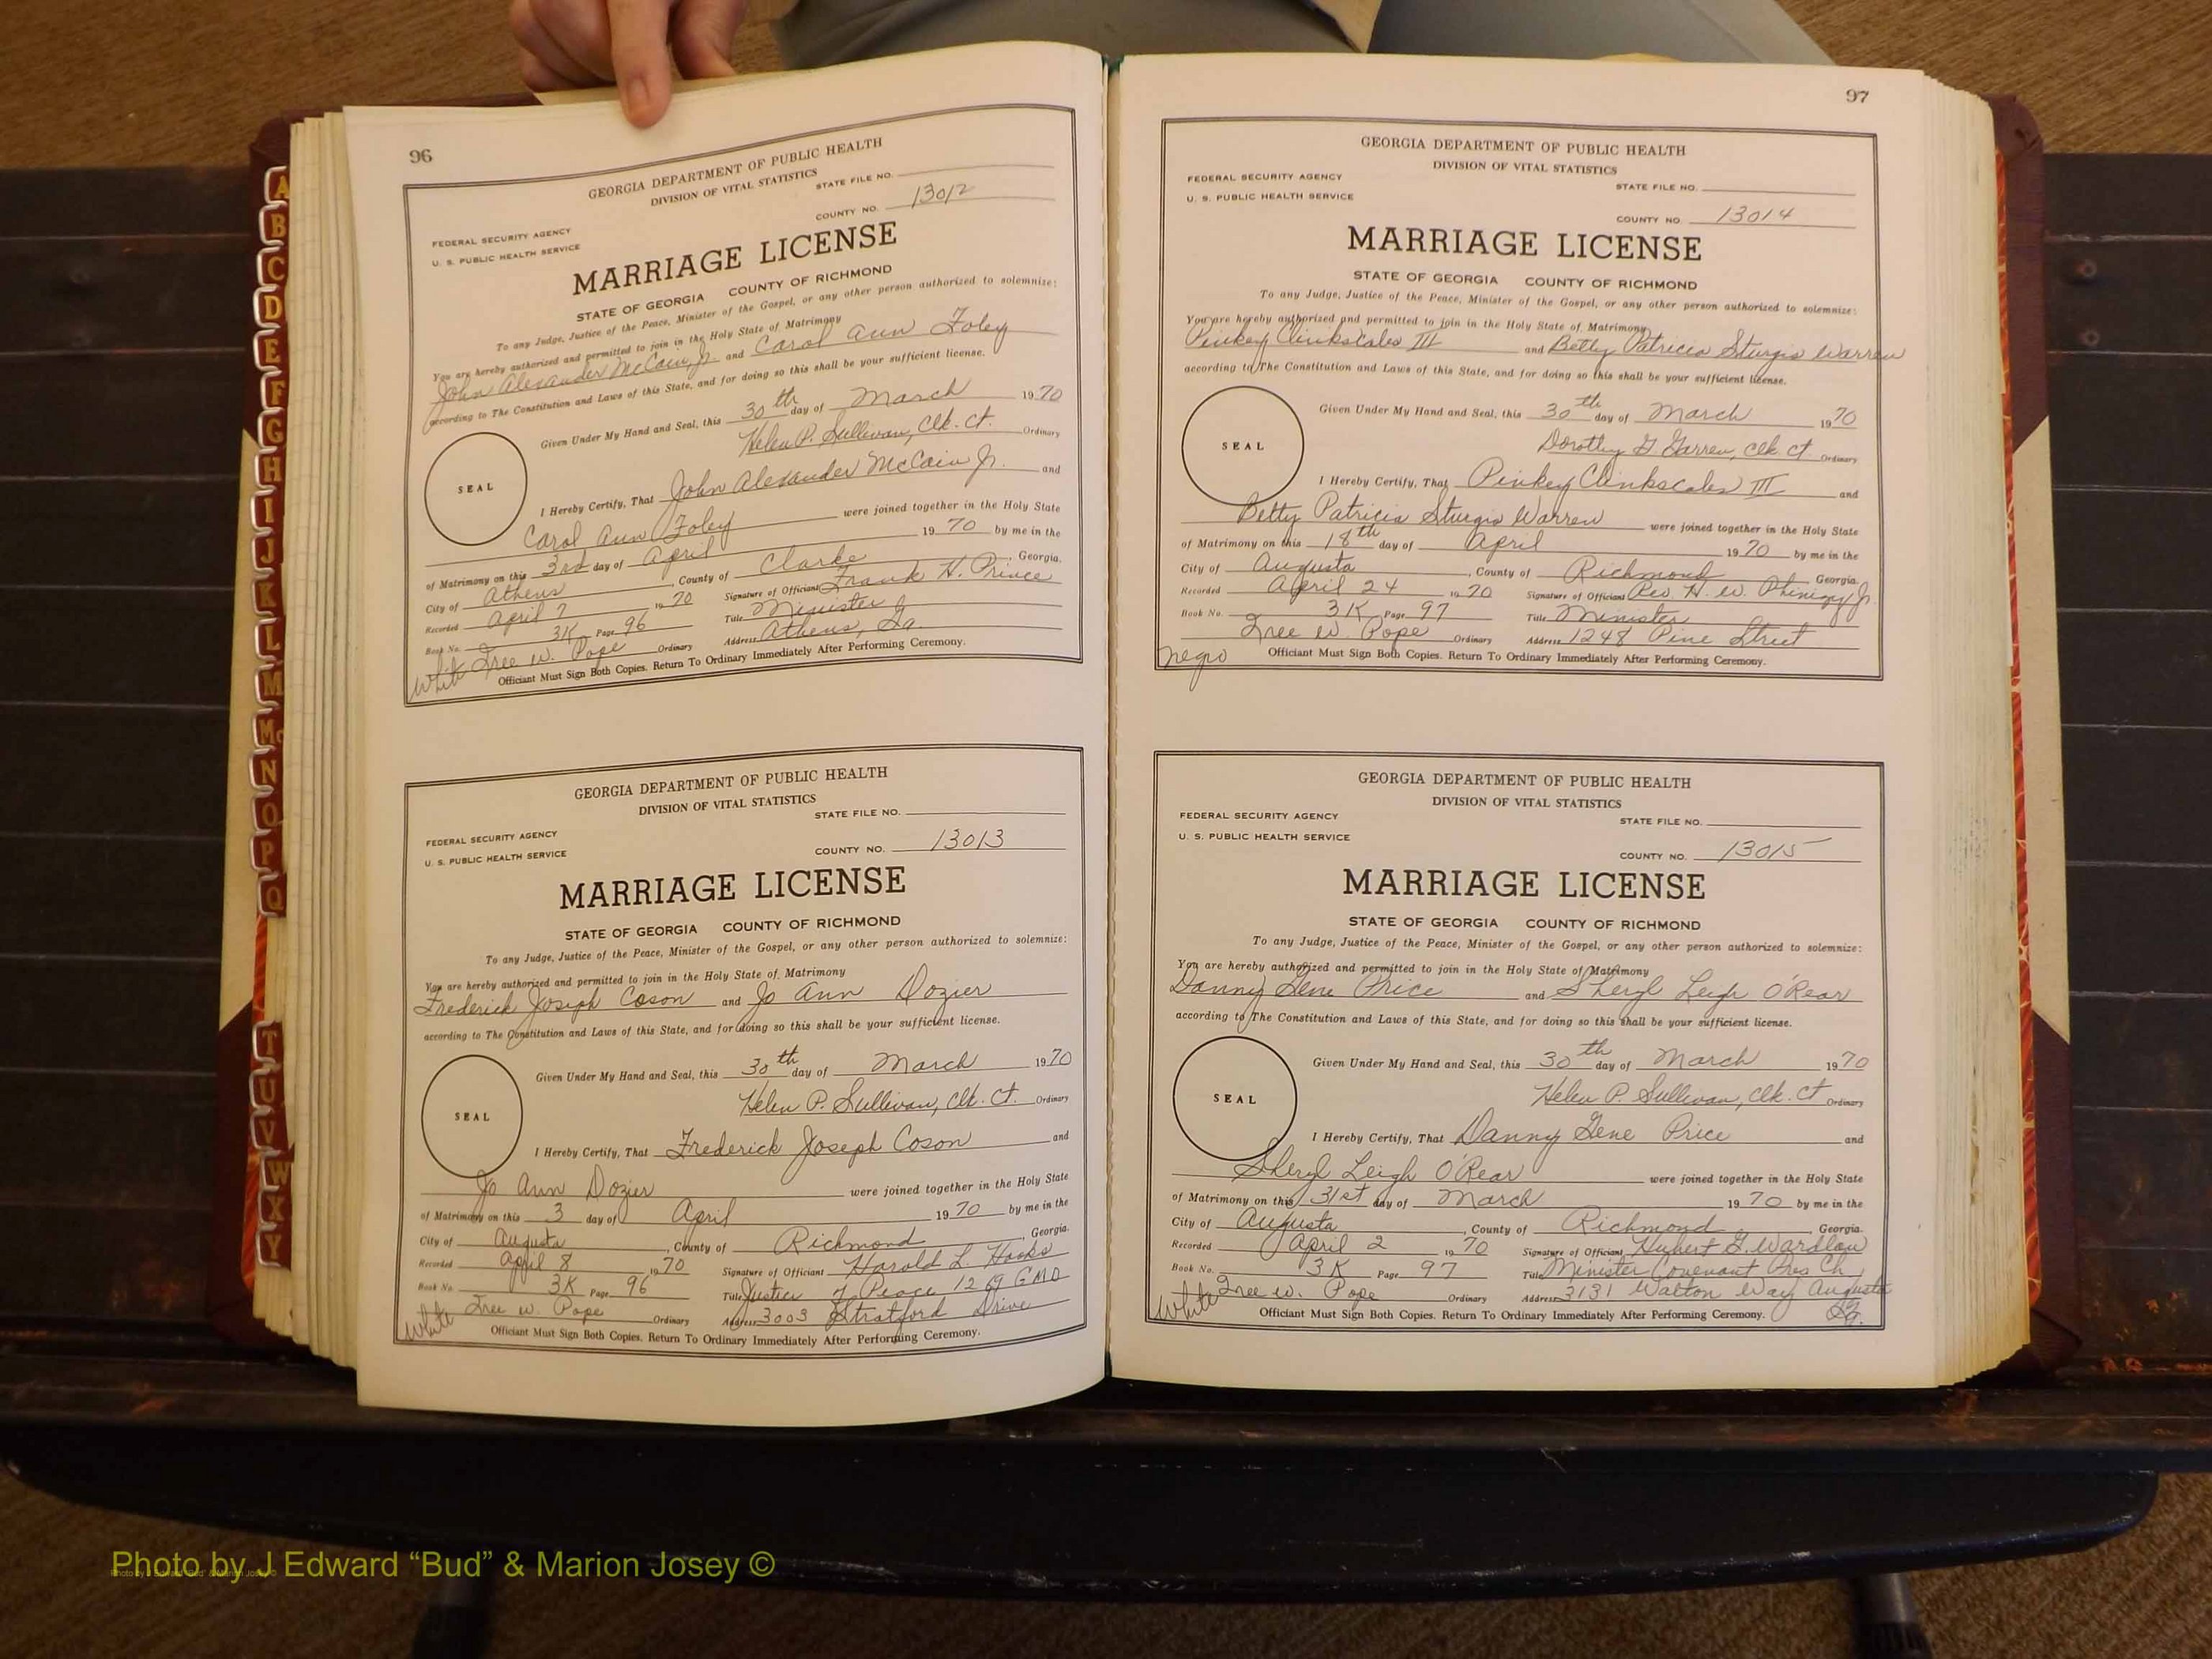 96
GEORGIA DEPARTMENT OF PUBLIC HEALTH
DIVISION OF VITAL STATISTICS
STATE FILE NO.
COUNTY NO. 13012
FEDERAL SECURITY AGENCY
U. S. PUBLIC HEALTH SERVICE
MARRIAGE LICENSE
STATE OF GEORGIA COUNTY OF RICHMOND
To any Judge, Justice of the Peace, Minister of the Gospel, or any other person authorized to solemnize:
You are hereby authorized and permitted to join in the Holy State of Matrimony
John Alexander McCain Jr. and Carol Ann Foley
according to The Constitution and Laws of this State, and for doing so this shall be your sufficient license.
Given Under My Hand and Seal, this 30th day of March 1970
Helen P. Sullivan, Clk. Ct. Ordinary
SEAL
I Hereby Certify, That John Alexander McCain Jr. and
Carol Ann Foley were joined together in the Holy State
of Matrimony on this 3rd day of April 1970 by me in the
City of Athens, County of Clarke, Georgia.
Recorded April 7 1970 Signature of Officiant Frank H. Prince
Book No. 3K Page 96 Title Minister
Tree W. Pope Ordinary Address Athens, Ga.
White Officiant Must Sign Both Copies. Return To Ordinary Immediately After Performing Ceremony.
GEORGIA DEPARTMENT OF PUBLIC HEALTH
DIVISION OF VITAL STATISTICS
STATE FILE NO.
FEDERAL SECURITY AGENCY
U. S. PUBLIC HEALTH SERVICE
COUNTY NO. 13013
MARRIAGE LICENSE
STATE OF GEORGIA COUNTY OF RICHMOND
To any Judge, Justice of the Peace, Minister of the Gospel, or any other person authorized to solemnize:
You are hereby authorized and permitted to join in the Holy State of Matrimony
Frederick Joseph Coson and Jo Ann Dozier
according to The Constitution and Laws of this State, and for doing so this shall be your sufficient license.
Given Under My Hand and Seal, this 30th day of March 1970
Helen P. Sullivan, Clk. Ct. Ordinary
SEAL
I Hereby Certify, That Frederick Joseph Coson and
Jo Ann Dozier were joined together in the Holy State
of Matrimony on this 3 day of April 1970 by me in the
City of Augusta, County of Richmond, Georgia.
Recorded April 8 1970 Signature of Officiant Harold L. Hooks
Book No. 3K Page 96 Title Justice of Peace 1269 GMD
Tree W. Pope Ordinary Address 3003 Stratford Drive
White Officiant Must Sign Both Copies. Return To Ordinary Immediately After Performing Ceremony.
97
GEORGIA DEPARTMENT OF PUBLIC HEALTH
DIVISION OF VITAL STATISTICS
FEDERAL SECURITY AGENCY
U. S. PUBLIC HEALTH SERVICE
STATE FILE NO.
COUNTY NO. 13014
MARRIAGE LICENSE
STATE OF GEORGIA COUNTY OF RICHMOND
To any Judge, Justice of the Peace, Minister of the Gospel, or any other person authorized to solemnize:
You are hereby authorized and permitted to join in the Holy State of Matrimony
Pinkey Clinkscales III and Betty Patricia Sturgis Warren
according to The Constitution and Laws of this State, and for doing so this shall be your sufficient license.
Given Under My Hand and Seal, this 30th day of March 1970
Dorothy G. Garren, Clk. Ct. Ordinary
SEAL
I Hereby Certify, That Pinkey Clinkscales III and
Betty Patricia Sturgis Warren were joined together in the Holy State
of Matrimony on this 18th day of April 1970 by me in the
City of Augusta, County of Richmond, Georgia.
Recorded April 24 1970 Signature of Officiant Rev. H. W. Phinizy Jr.
Book No. 3K Page 97 Title Minister
Tree W. Pope Ordinary Address 1248 Pine Street
negro Officiant Must Sign Both Copies. Return To Ordinary Immediately After Performing Ceremony.
GEORGIA DEPARTMENT OF PUBLIC HEALTH
DIVISION OF VITAL STATISTICS
FEDERAL SECURITY AGENCY
U. S. PUBLIC HEALTH SERVICE
STATE FILE NO.
COUNTY NO. 13015
MARRIAGE LICENSE
STATE OF GEORGIA COUNTY OF RICHMOND
To any Judge, Justice of the Peace, Minister of the Gospel, or any other person authorized to solemnize:
You are hereby authorized and permitted to join in the Holy State of Matrimony
Danny Gene Price and Sheryl Leigh O'Rear
according to The Constitution and Laws of this State, and for doing so this shall be your sufficient license.
Given Under My Hand and Seal, this 30th day of March 1970
Helen P. Sullivan, Clk. Ct Ordinary
SEAL
I Hereby Certify, That Danny Gene Price and
Sheryl Leigh O'Rear were joined together in the Holy State
of Matrimony on this 31st day of March 1970 by me in the
City of Augusta, County of Richmond, Georgia.
Recorded April 2 1970 Signature of Officiant Hubert G. Wardlaw
Book No. 3K Page 97 Title Minister Covenant Pres Ch
Tree W. Pope Ordinary Address 3131 Walton Way Augusta Ga.
White Officiant Must Sign Both Copies. Return To Ordinary Immediately After Performing Ceremony.
A
B
C
D
E
F
G
H
I
J
K
L
M
Mc
N
O
P
Q
T
U
V
W
X
Y
Photo by J Edward “Bud” & Marion Josey ©
Photo by J Edward “Bud” & Marion Josey ©